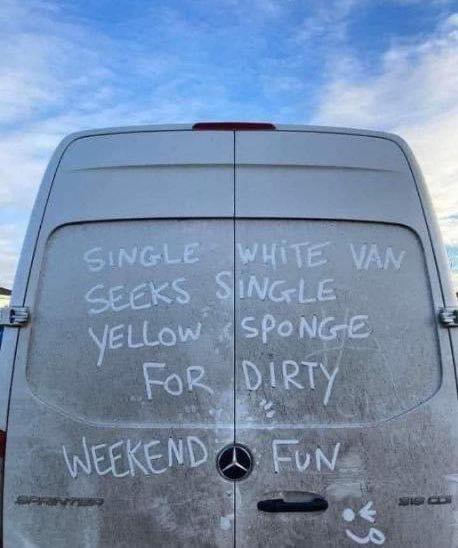 SINGLE WHITE VAN
SEEKS SINGLE
YELLOW SPONGE
FOR DIRTY
WEEKEND FUN
SPRINTER
519 CDI